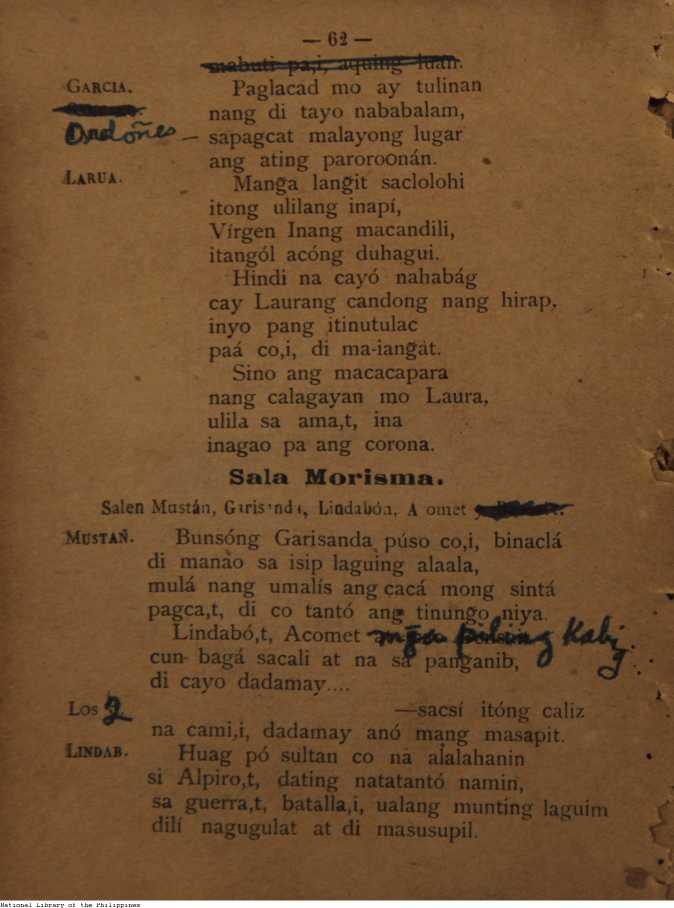 — 62 —
mabuti pa,i, aquing
GARCIA. Paglacad mo ay tulinan
nang di tayo nababalam,
Ordoñes — sapagcat malayong lugar
ang ating paroroonán.
LARUA. Manga langit saclolohi
itong ulilang inapí,
Vírgen Inang macandili,
itangól acóng duhagui.
Hindi na cayó nahabág
cay Laurang candong nang hirap,
inyo pang itinutulac
paá co,i, di ma-iangat.
Sino ang macacapara
nang calagayan mo Laura,
ulila sa ama,t, ina
inagao pa ang corona.
Sala Morisma.
Salen Mustán, Garisanda, Lindabón, Acomet
MUSTAÑ. Bunsóng Garisanda púso co,i, binaclá
di manáo sa isip laguing alaala,
mulá nang umalís ang cacá mong sintá
pagca,t, di co tantó ang tinungo niya.
Lindabó,t, Acomet mga piling Kabig
cun bagá sacali at na sa panganib,
di cayo dadamay....
Los 2 —sacsí itóng caliz
na cami,i, dadamay anó mang masapit.
LINDAB. Huag pó sultan co na alalahanin
si Alpiro,t, dating natatantó namin,
sa guerra,t, batalla,i, ualang munting laguim
dilí nagugulat at di masusupil.
National Library of the Philippines